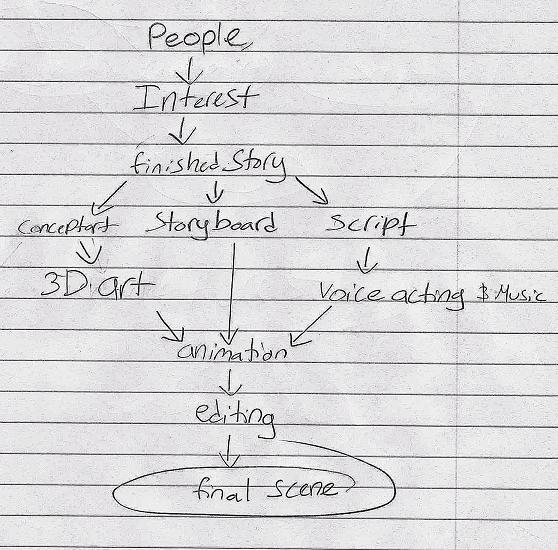 People
Interest
finished Story
Conceptart Storyboard Script
3D art Voice acting & Music
animation
editing
final scene